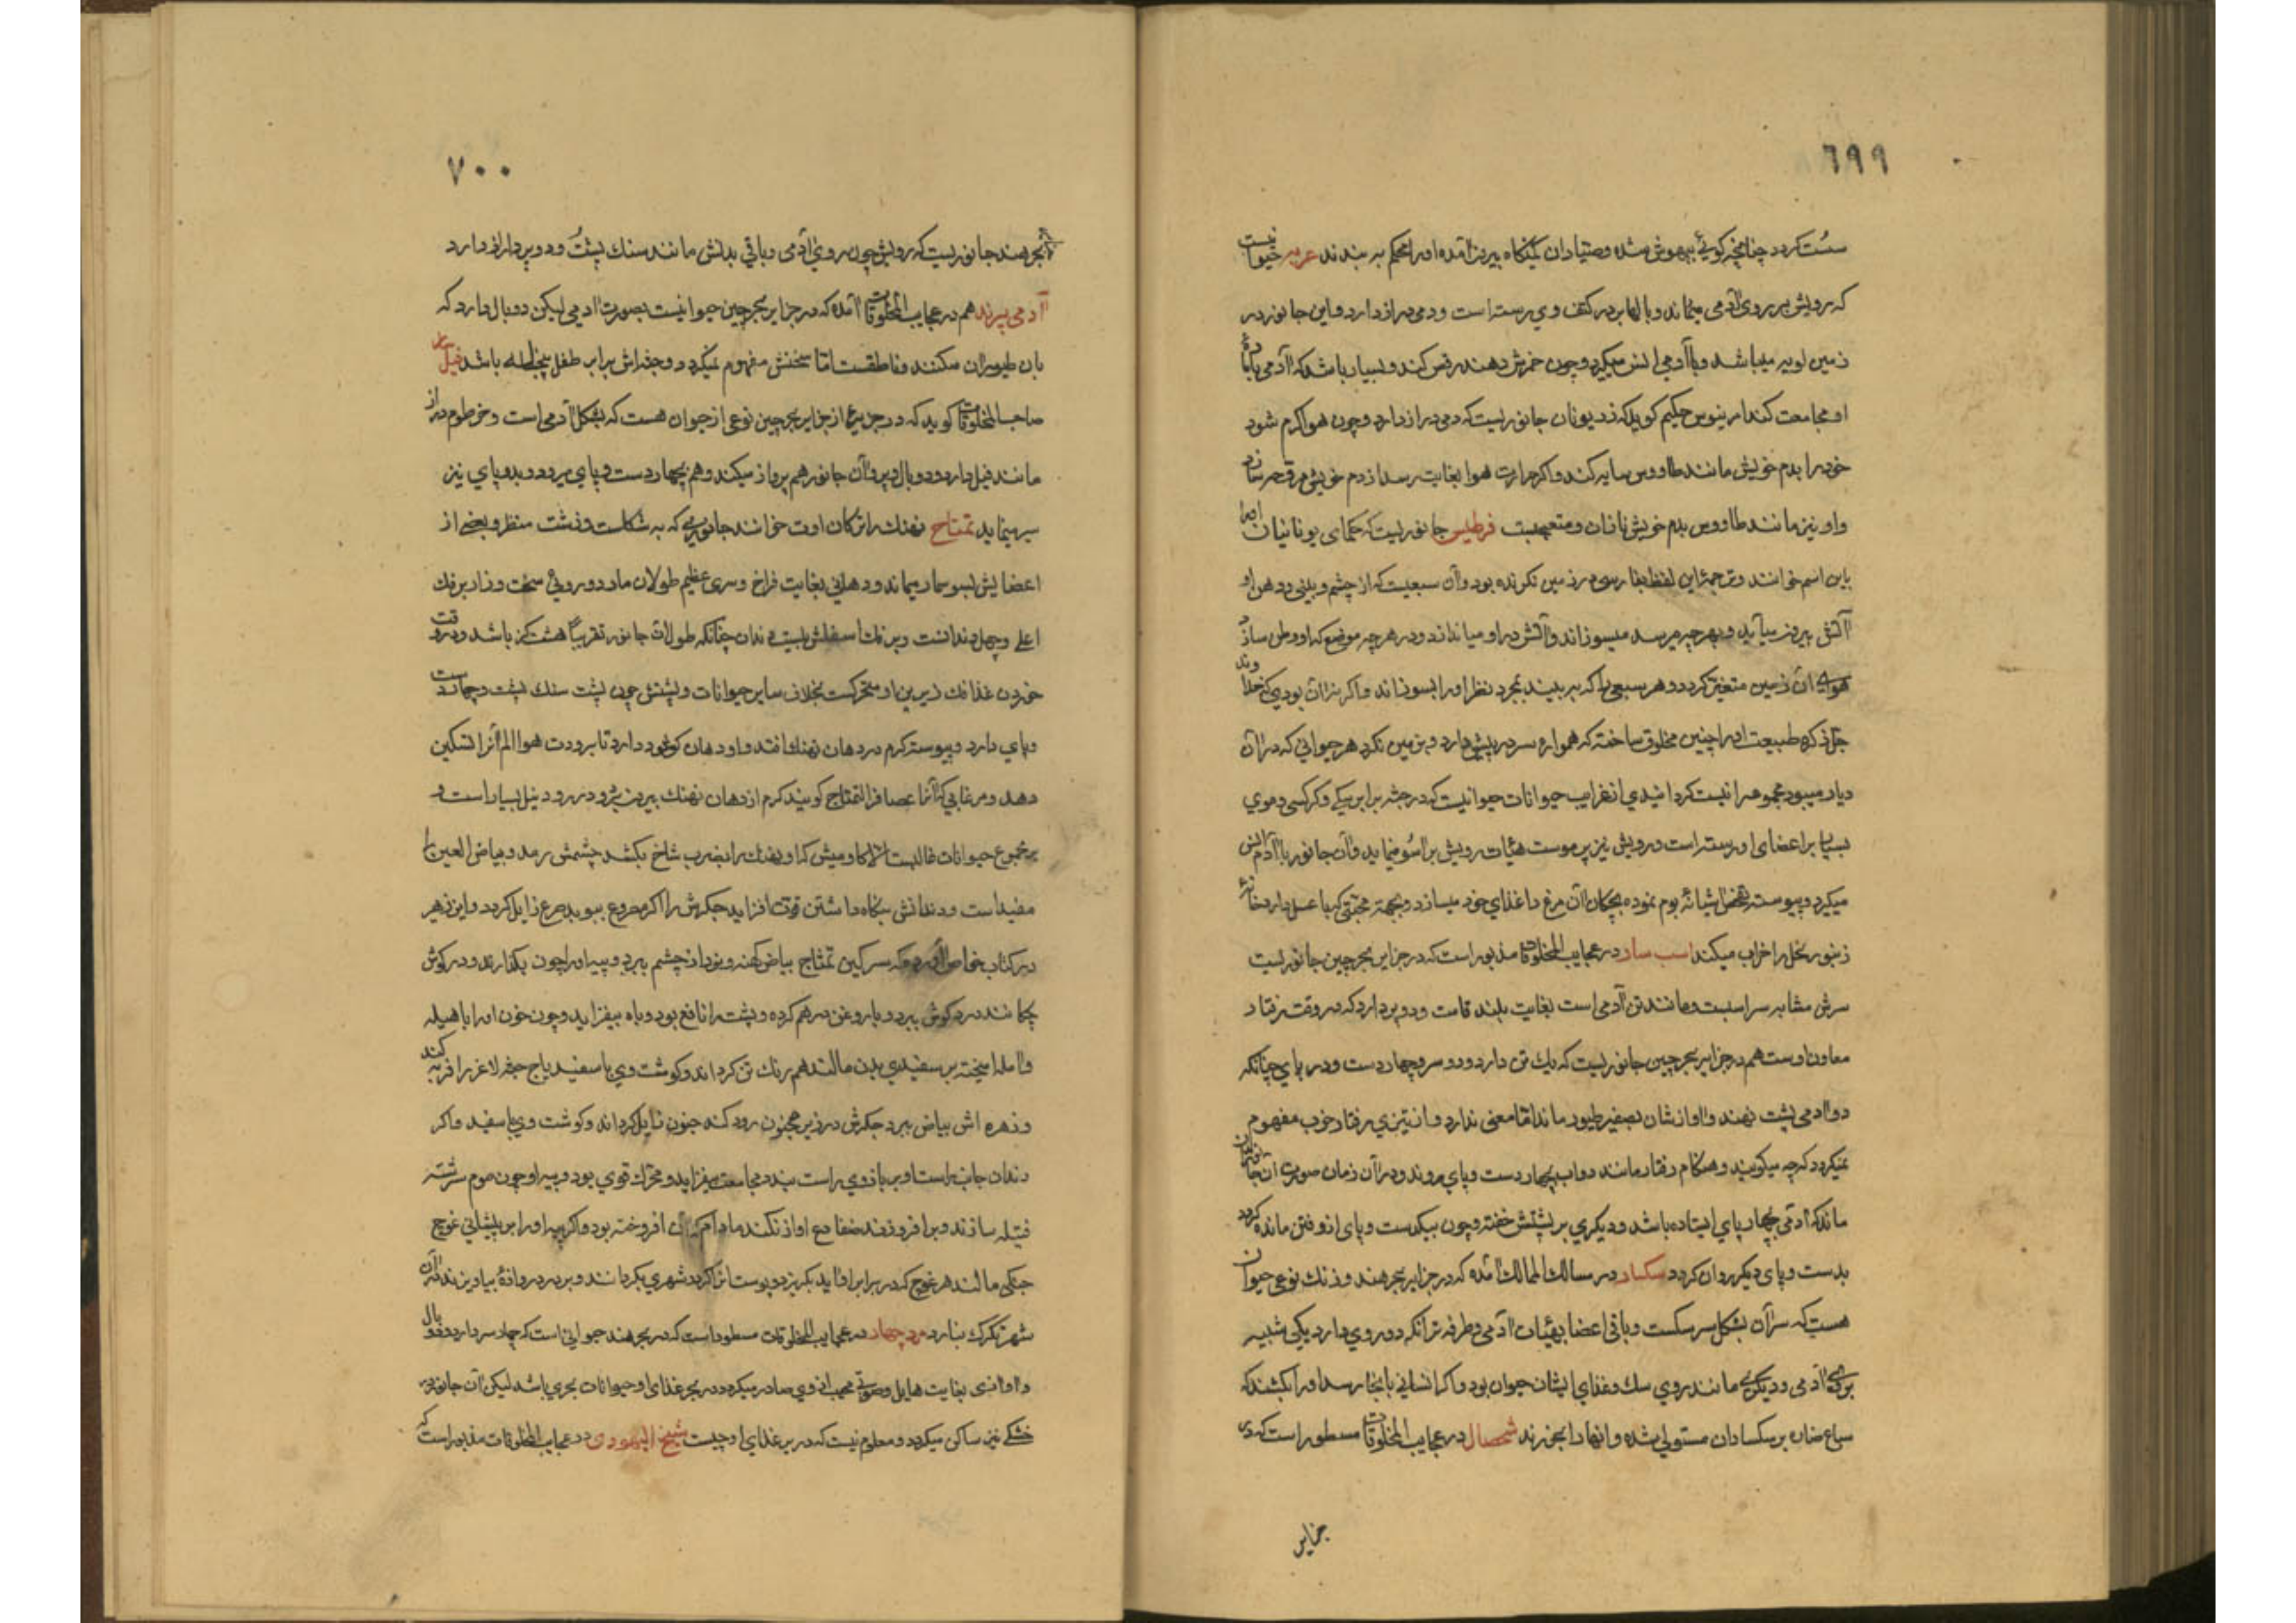 ٦٩٩
سست کردد چنانچه کوئی بیهوش شده وصیادان کمینکاه بیرون آمده اورا محکم بر بندند حیوانیست
که رویش بر روی آدمی میماند وبالها بر در کتف وی رسته است ودمی دراز دارد واین جانور در
زمین لوبیه میباشد وبا آدمی انس میکیرد وچون خمرش دهند رقص کند وبسیار باشد که آدمی با ماده
او مجامعت کند حکیم کوید که نزد یونان جانوریست که دمی دراز دارد وچون هوا کرم شود
خود را بدم خویش مانند طاووس سایه کند واکر حرارت هوا بغایت رسد از دم خویش مروحه سازد
واو نیز مانند طاووس بدم خویش نازان ومتعجبست جانوریست که حکمای یونانیان اورا
باین اسم خوانند وترجمهٔ این لفظ بفارسی در زمین نکرنده بود وآن سبعیست که از چشم وبینی ودهن او
آتش بیرون میآید وبهرچه میرسد میسوزاند وآتش در او میاندازد ودر هرچه موضع که او وطن سازد
هوای آن زمین متغیر کردد وهر سبعی را که ببیند بمجرد نظر اورا بسوزاند واکر نه آن بودی که خداوند
جل ذکره طبیعت اورا چنین مخلوق ساخته که همواره سر در پیش دارد وبزمین نکرد هر حیوانی که در آن
دیار میبود مجموعرا نیست کردانیدی از غرایب حیوانات حیوانیست که در جثه برابر سکی وکرکسی وموی
بسیار بر اعضای او رسته است ورویش نیز پر موست هیأت رویش براسو مینماید وآن جانور با آدم انس
میکیرد وپیوسته آشیانهٔ بوم نموده بچکان آن مرغ را غذای خود میسازد وبجهة محبتی که با عسل دارد خانهٔ
زنبور نحل را خراب میکند اسب سار در عجایب المخلوقات مذبور است که در جزایر بحر چین جانوریست
سرش مشابه سر اسبست ومانند تن آدمی است بغایت بلند قامت ودو پر دارد که در وقت رفتار
معاون اوست هم در جزایر بحر چین جانوریست که یک تن دارد ودو سر وچهار دست ودر پای چنانکه
دو آدمی پشت نهند وآوازشان بصفیر طیور ماند امّا معنی ندارد واز تیزی رفتار خوب مفهوم
نمیکردد که چه میکویند وهنکام رفتار مانند دواب بچهار دست وپای روند ودر آن زمان صورت آن جانوران
ماند که آدمی بچهار پای ایستاده باشد ودیکری بر پشتش خفته وچون بیکدست وپای از رفتن مانده کردد
بدست وپای دیکر روان کردد سکسار در مسالک الممالک آمده که در جزایر بحر هند وزنک نوعی حیوان
هست که سر آن بشکل سر سکست وباقی اعضا بهیأت آدمی وطرفه تر آنکه دو روی دارد یکی شبیه
بروی آدمی ودیکری مانند روی سک وغذای ایشان حیوان بود واکر انسانی بآنجا رسد اورا بکشند که
سباع ضاره بر سکساران مستولی شده وآنها را بخورند شمصال در عجایب المخلوقات مسطور است که در
جزایر
٧٠٠
بحر هند جانوریست که رویش چون روی آدمی وباقی بدنش مانند سنک پشت ودو پر دراز دارد
آدمی پرند هم در عجایب المخلوقات آمده که در جزایر بحر چین حیوانیست بصورت آدمی لیکن دو بال دارد که
بآن طیران میکنند وناطقست امّا سخنش مفهوم نمیکردد وجثه اش برابر طفل باشد
صاحب المخلوقات کوید که در جزیرهٔ از جزایر بحر چین نوعی از حیوان هست که بشکل آدمی است وخرطوم دراز
مانند فیل دارد ودو بال وپر وآن جانور هم پرواز میکند وهم بچهار دست وپای میرود وبدو پای نیز
سیر مینماید تمتاح نهنک را ترکان اوت خوانند جانوری که به شکلست وزشت منظر وبعضی از
اعضایش بسوسمار میماند ودهانی بغایت فراخ وسری عظیم طولان مار ودو روئی سخت وزاد بر فک
اعلی وچهل دندانست وبر فک اسفلش بیست دندان چنانکه طولان جانور تقریباً هشت کز باشد ودر وقت
خوردن غذا فک زیرین او متحرکست بخلاف سایر حیوانات وپشتش چون پشت سنک پشت وچهار دست
وپای دارد وپیوسته کرم در دهان نهنک افتد واو دهان کوشود دارد تا برودت هوا الم آنرا تسکین
دهد ومرغابی که آنرا عصافر التمتاح کویند کرم از دهان نهنک بیرون برد ودر رود نیل بسیار است و
بر مجموع حیوانات غالبست الّا کاومیش که او نهنک را بضرب شاخ بکشد چشمش رمد وبیاض العین را
مفید است ودندانش نکاه داشتن قوت افزاید جکرش را اکر مصروع ببوید صرع زایل کردد واین زهیر
در کتاب خواص آورده که سرکین تمثاج بیاض کهنه ونو را از چشم ببرد وپیه اورا چون بکدازند ودر کوش
چکانند درد کوش ببرد وبا روغن درهم کرده وپشت را نافع بود وباه بیفزاید وچون خون اورا با هلیله
وآمله آمیخته بر سفیدی بدن مالند هم رنک تن کرداند وکوشت وی با سفیدباج جثه لاغر را فربه کند
وزهره اش بیاض ببرد جکرش در زیر مجنون دود کند جنون زایل کرداند وکوشت وی با سفید واکر
دندان جانب راست او بر بازوی راست بندد مجامعت بیفزاید ومحرک قوی بود وپیه او چون موم سرشته
فتیله سازند وبرافروزند ضفادع آواز نکنند مادام که آن افروخته بود واکر پیه اورا بر پیشانی غوچ
جنکی مالند هر غوچ که در برابر آید بکریزد وپوست آنرا کرد شهری بکردانند وبر در دروازهٔ بیاویزند در آن
شهر تکرک نبارد در عجایب المخلوقات مسطور است که در بحر هند حیوانی است که چهار سر دارد ودو بال
وآوازی بغایت هایل وصوتی مهیب از وی صادر میکردد در بحر غذای او حیوانات بحری باشد لیکن آن جانور در
خشکی نیز ساکن میکردد ومعلوم نیست که در بر غذای او چیست شیخ الیهودی در عجایب المخلوقات مذبور است که